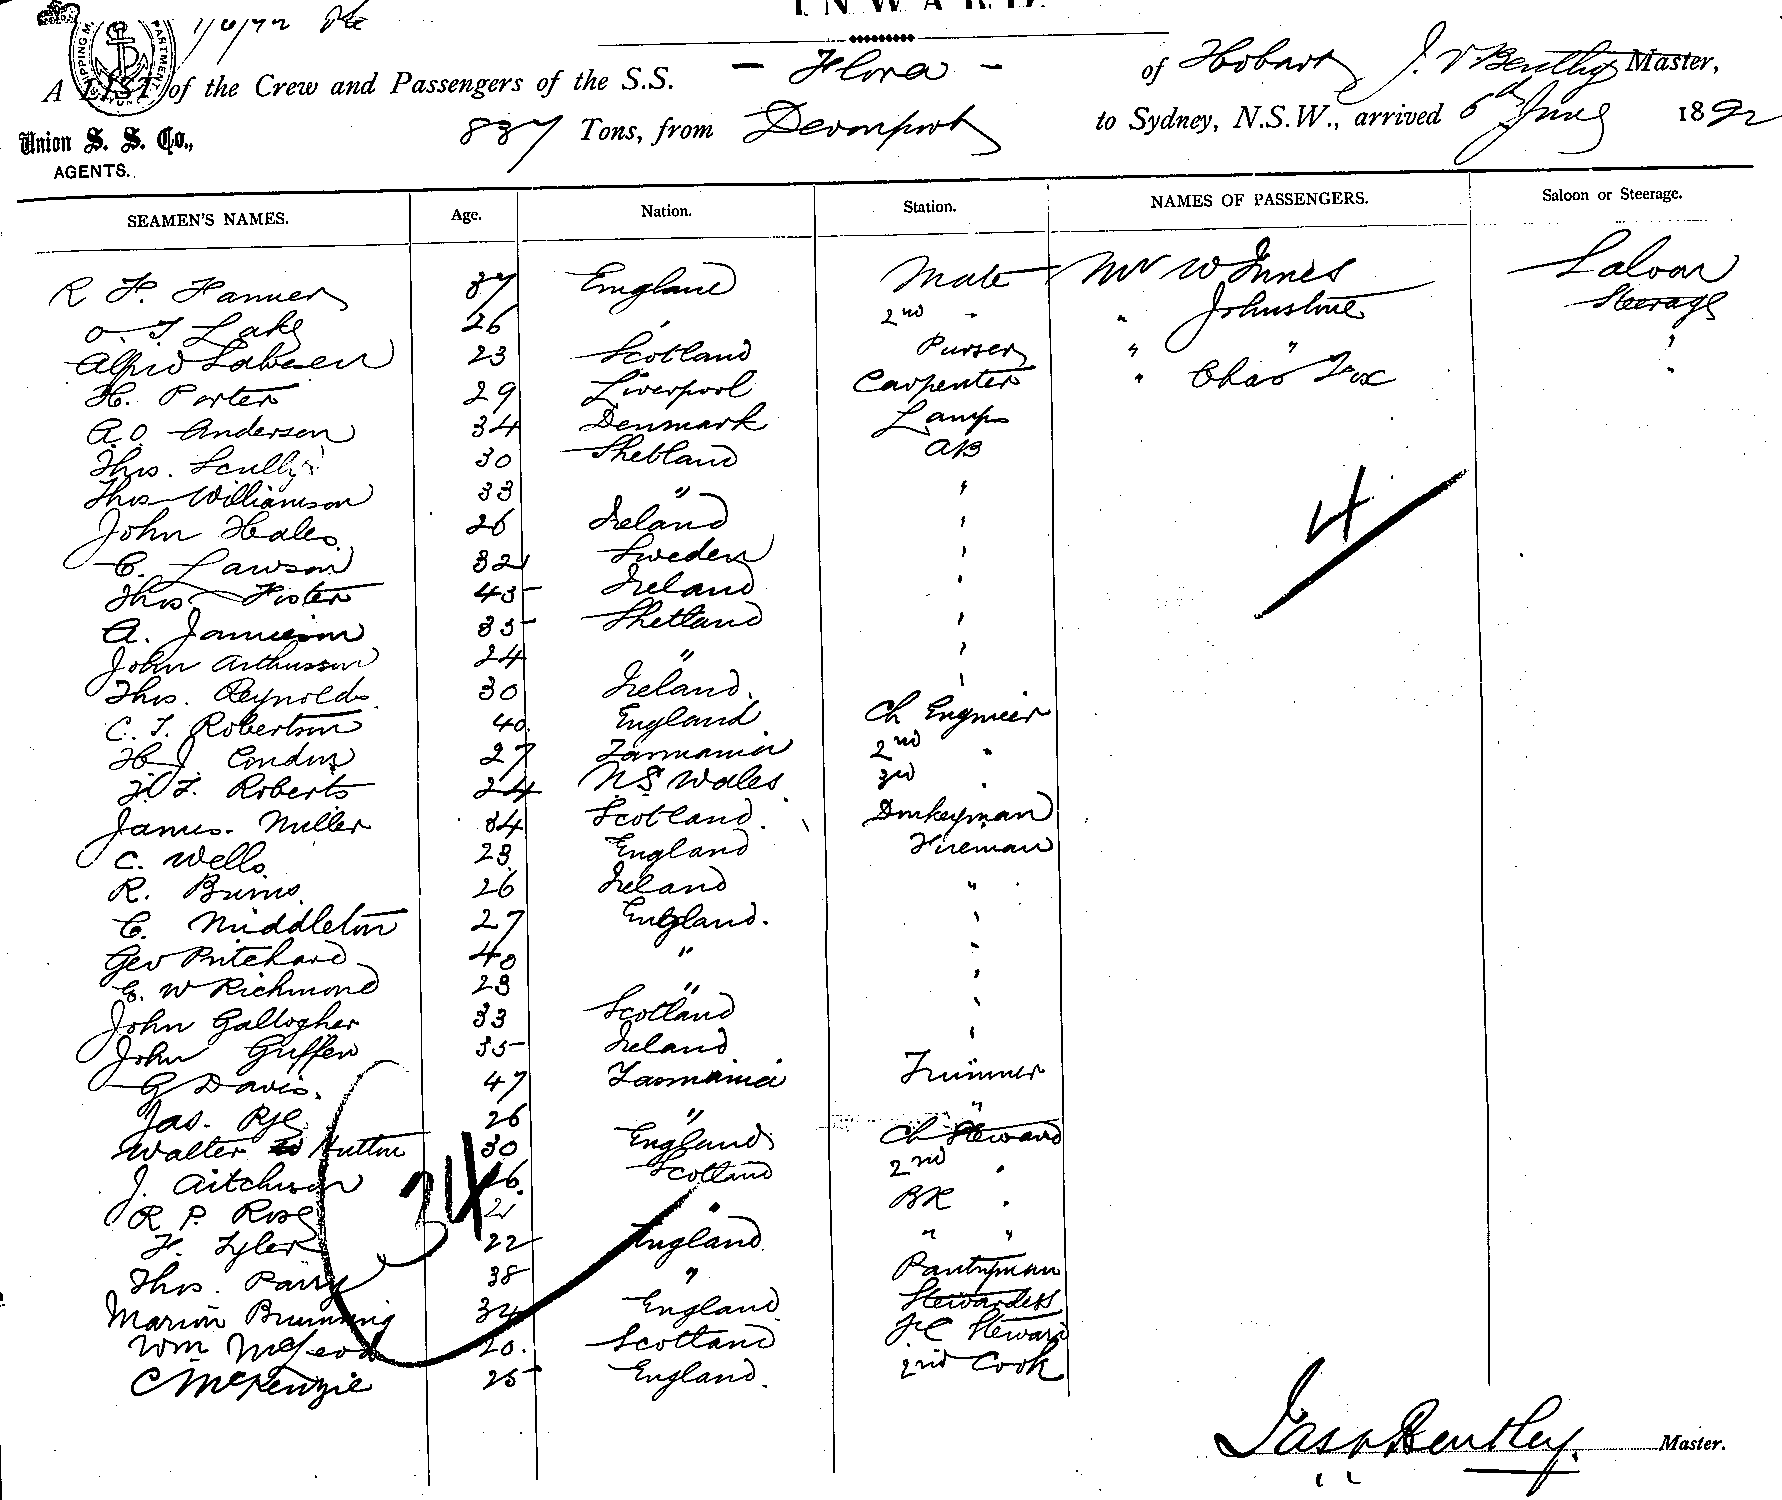 INWARD.
1/6/92
A LIST of the Crew and Passengers of the S.S. - Flora - of Hobart J. V Bentley Master,
Union S. S. Co., 837 Tons, from Devonport to Sydney, N.S.W., arrived 6th June 1892
AGENTS.
SEAMEN'S NAMES. Age. Nation. Station. NAMES OF PASSENGERS. Saloon or Steerage.
R H. 37 England Mate Mr W Innes Saloon
O. T Lake 26 " 2nd " " Johnstone Steerage
Alfred 23 Scotland Purser " " "
H. Porter 29 Liverpool Carpenter " Chas Fox "
A.O. Anderson 34 Denmark Lamps
Thos. Scully 30 Shetland AB
Thos Williamson 33 " "
John Heales 26 Ireland "
C. Lawson 32 Sweden "
Thos Foster 43 Ireland "
A. Jamieson 35 Shetland "
John Arthurson 24 " "
Thos. Reynolds 30 Ireland. "
C. T. Robertson 40 England Ch Engineer
H J Condon 27 Tasmania 2nd "
T. Roberts 24 N S Wales 3rd "
James. Miller 34 Scotland. Donkeyman
C. Wells. 23 England Fireman
R. Burns. 26 Ireland "
C. Middleton 27 England. "
Geo Pritchard 40 " "
E. W Richmond 23 " "
John Gallogher 33 Scotland "
John Griffen 35 Ireland "
G Davis. 47 Tasmania Trimmer
Jas. Rye 26 " "
Walter Hutton 30 England Ch Steward
J. Aitchison 26. Scotland 2nd "
R P. Rose 21 " BR "
F. Tyler 22 England " "
Thos. Parry 38 " Pantryman
Marion Brunning 34 England Stewardess
Wm McLeod 20. Scotland FC Steward
C McKenzie 25 England. 2nd Cook
4
34
Jas V Bentley. Master.